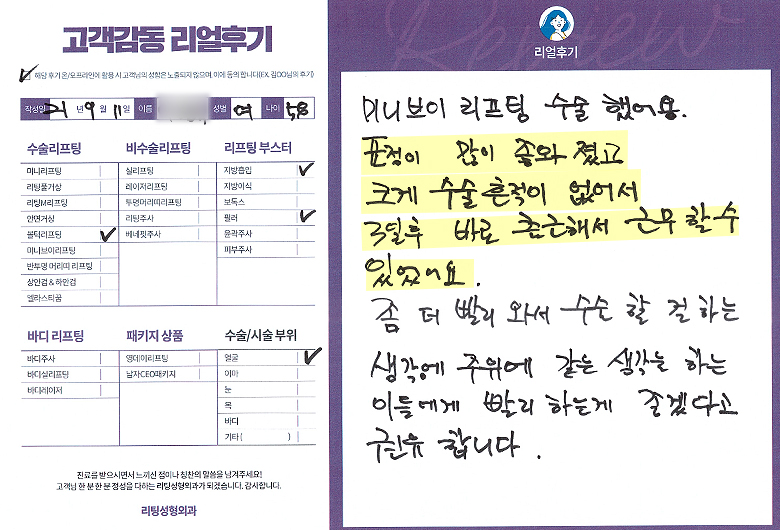 고객감동 리얼후기
해당 후기 온/오프라인에 활용 시 고객님의 성함은 노출되지 않으며, 이에 동의 합니다(EX. 김OO님의 후기)
작성일 21 년 9 월 11 일 이름 성별 여 나이 58
수술리프팅 비수술리프팅 리프팅 부스터
미니리프팅 실리프팅 지방흡입
리팅풀거상 레이저리프팅 지방이식
리팅M리프팅 투명머리띠리프팅 보톡스
안면거상 리팅주사 필러
볼턱리프팅 베네핏주사 윤곽주사
미니브이리프팅 피부주사
반투명 머리띠 리프팅
상안검 & 하안검
엘라스티꿈
바디 리프팅 패키지 상품 수술/시술 부위
바디주사 영데이리프팅 얼굴
바디실리프팅 남자CEO패키지 이마
바디레이저 눈
목
바디
기타 ( )
진료를 받으시면서 느끼신 점이나 칭찬의 말씀을 남겨주세요!
고객님 한 분 한 분 정성을 다하는 리팅성형외과가 되겠습니다. 감사합니다.
리팅성형외과
Review
리얼후기
미니브이 리프팅 수술 했어용.
표정이 많이 좋와 졌고
크게 수술흔적이 없어서
3일후 바로 출근해서 근무 할 수
있었어요.
좀 더 빨리 와서 수술 할 걸 하는
생각에 주위에 같은 생각을 하는
이들에게 빨리 하는게 좋겠다고
권유 합니다.